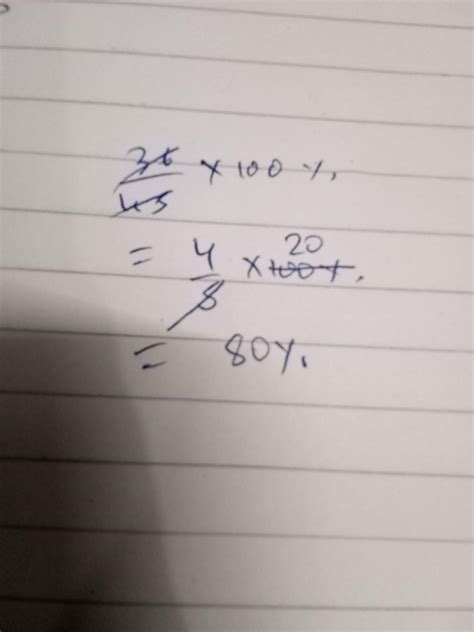 36/45 × 100 %
= 4/5 × 100 % 20
= 80 %